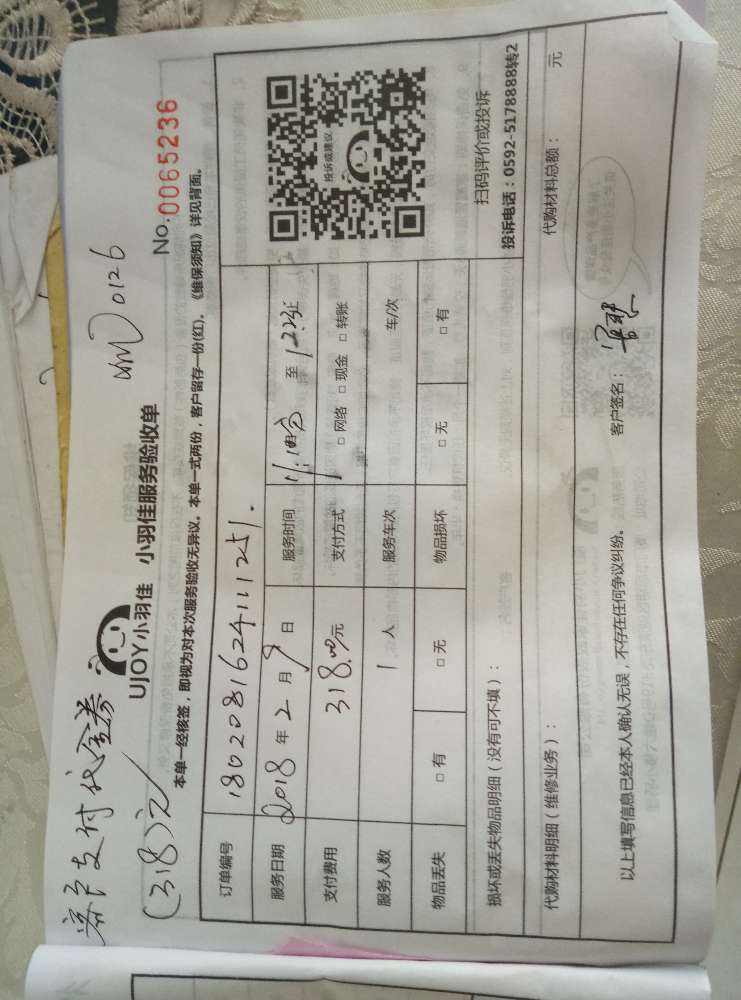 客户支付代金券
(318)元
0126
UJOY小羽佳 小羽佳服务验收单
No.0065236
本单一经核签，即视为对本次服务验收无异议。本单一式两份，客户留存一份(红)，《维保须知》详见背面。
订单编号 1802081624111251.
服务日期 2018年2月9日 服务时间 至
支付费用 318.00元 支付方式 □网络 □现金 □转账
服务人数 1人 服务车次 车/次
物品丢失 □有 □无 物品损坏 □无 □有
投诉或建议
扫码评价或投诉
投诉电话：0592-5178888转2
损坏或丢失物品明细（没有可不填）：
代购材料明细（维修业务）： 代购材料总额： 元
以上填写信息已经本人确认无误，不存在任何争议纠纷。 客户签名：